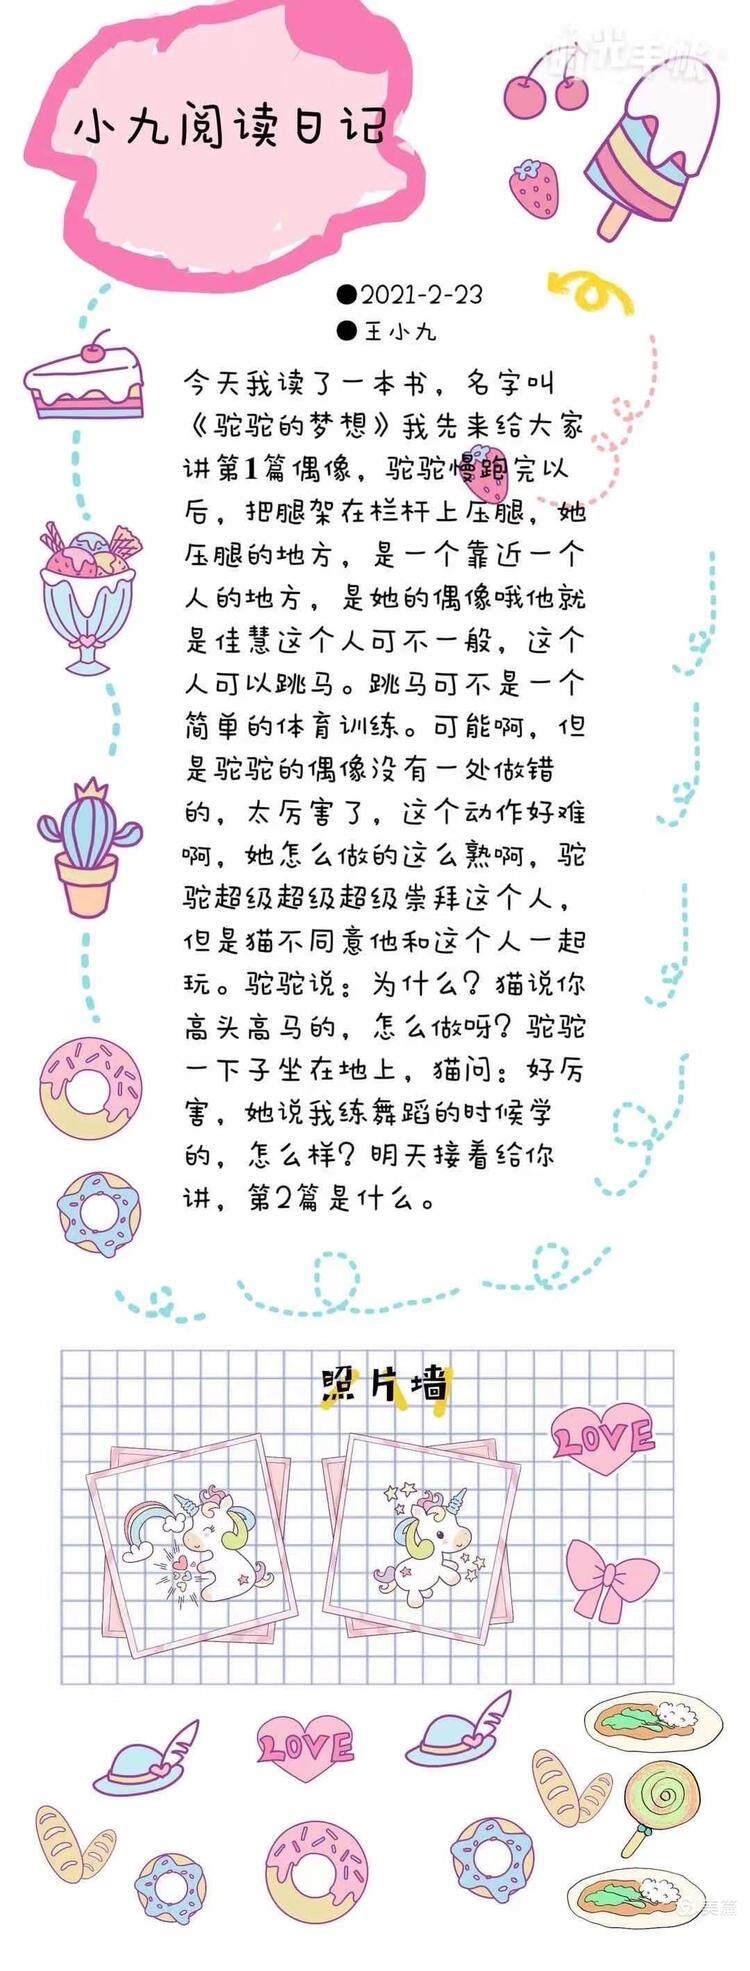 时光手帐
小九阅读日记
●2021-2-23
●王小九
今天我读了一本书，名字叫
《驼驼的梦想》我先来给大家
讲第1篇偶像，驼驼慢跑完以
后，把腿架在栏杆上压腿，她
压腿的地方，是一个靠近一个
人的地方，是她的偶像哦他就
是佳慧这个人可不一般，这个
人可以跳马。跳马可不是一个
简单的体育训练。可能啊，但
是驼驼的偶像没有一处做错
的，太厉害了，这个动作好难
啊，她怎么做的这么熟啊，驼
驼超级超级超级崇拜这个人，
但是猫不同意他和这个人一起
玩。驼驼说：为什么？猫说你
高头高马的，怎么做呀？驼驼
一下子坐在地上，猫问：好厉
害，她说我练舞蹈的时候学
的，怎么样？明天接着给你
讲，第2篇是什么。
照片墙
LOVE
LOVE
美篇